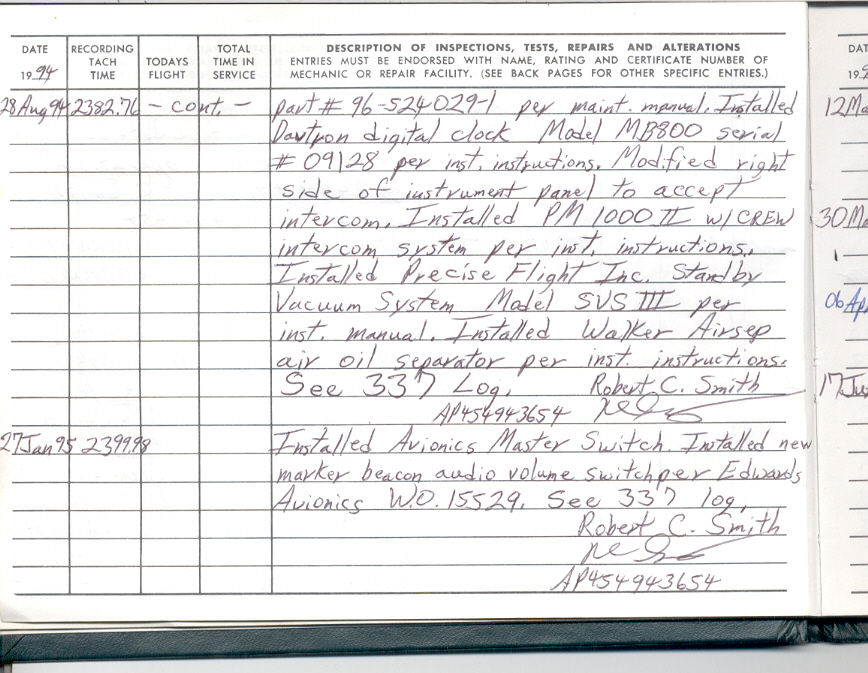 DATE
1994
RECORDING
TACH
TIME
TODAYS
FLIGHT
TOTAL
TIME IN
SERVICE
DESCRIPTION OF INSPECTIONS, TESTS, REPAIRS AND ALTERATIONS
ENTRIES MUST BE ENDORSED WITH NAME, RATING AND CERTIFICATE NUMBER OF
MECHANIC OR REPAIR FACILITY. (SEE BACK PAGES FOR OTHER SPECIFIC ENTRIES.)
28 Aug 94 2382.76 - cont. - part # 96-524029-1 per maint. manual. Installed
Davtron digital clock Model M8800 serial
# 09128 per inst. instructions. Modified right
side of instrument panel to accept
intercom. Installed PM 1000 II w/CREW
intercom system per inst. instructions.
Installed Precise Flight Inc. Standby
Vacuum System Model SVS III per
inst. manual. Installed Walker Airsep
air oil separator per inst. instructions.
See 337 Log. Robert C. Smith
AP454943654
27 Jan 95 2399.98 Installed Avionics Master Switch. Installed new
marker beacon audio volume switch per Edwards
Avionics W.O. 15529. See 337 log.
Robert C. Smith
AP454943654
DAT
12 Ma
30 Ma
06 Ap
17 Ju